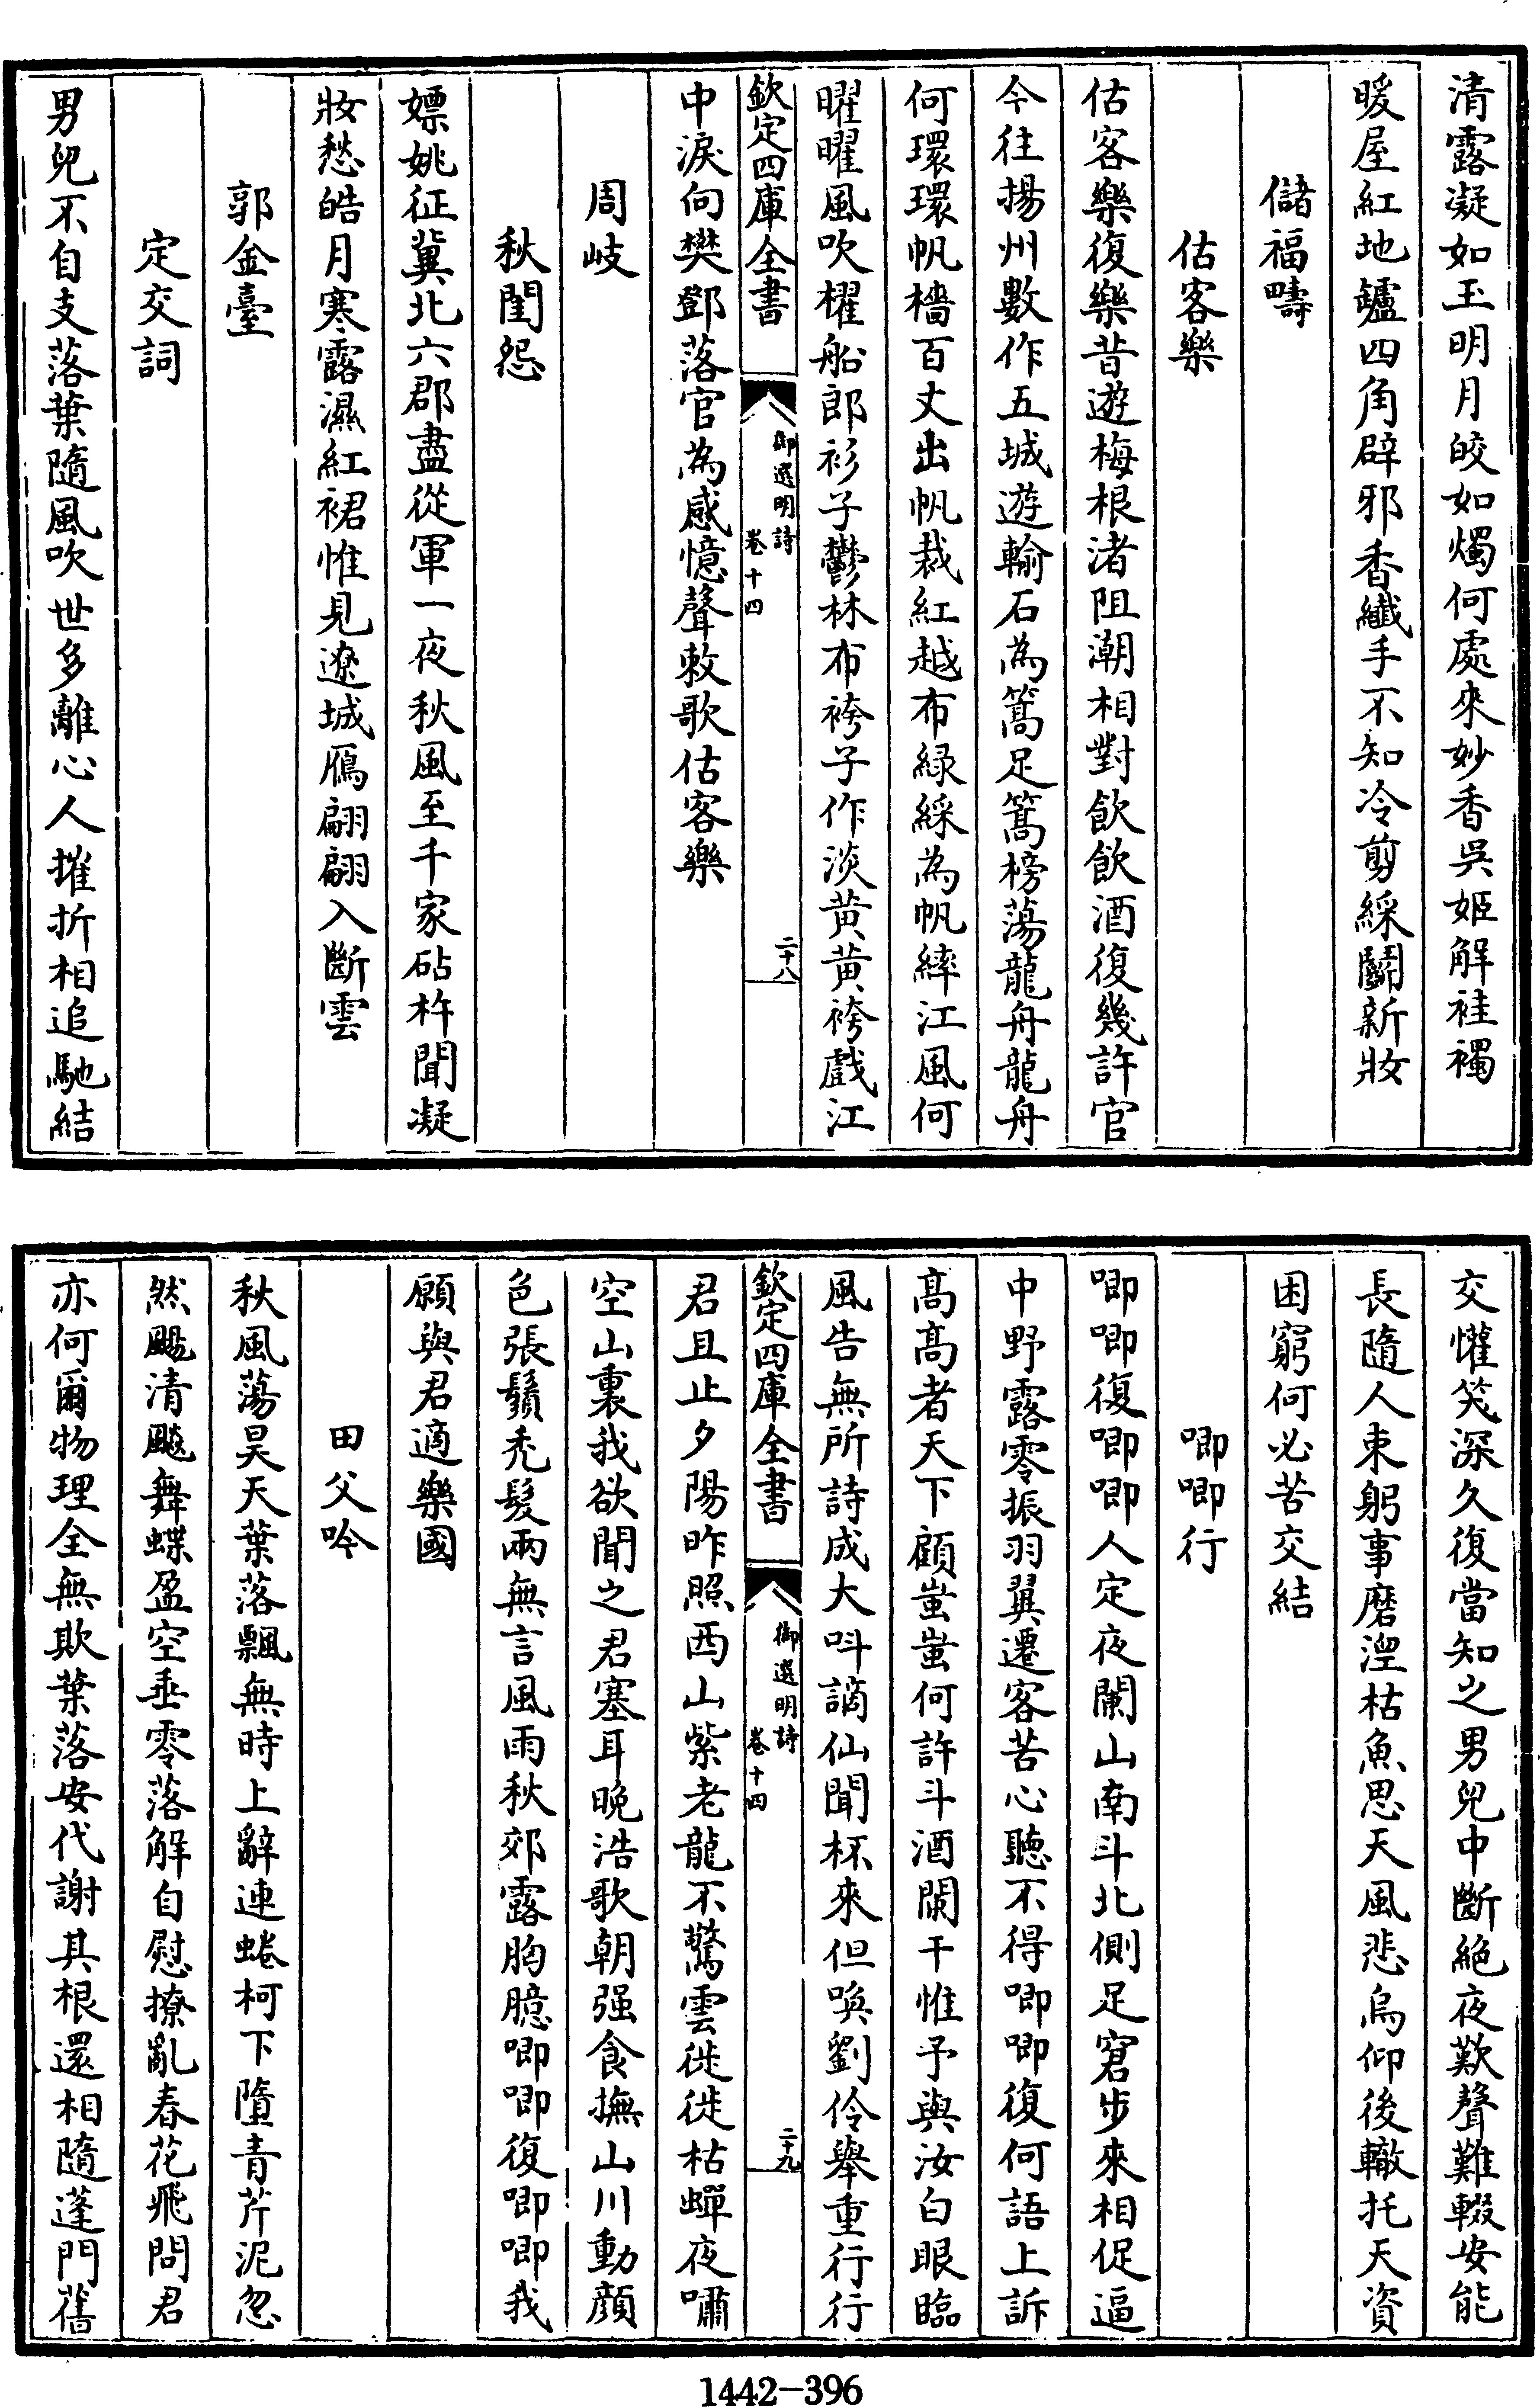 清露凝如玉明月皎如燭何處來妙香吳姬解袿襡
暖屋紅地鑪四角辟邪香纖手不知冷剪綵鬭新妝
儲福疇
估客樂
估客樂復樂昔遊梅根渚阻潮相對飲飲酒復幾許官
今往揚州數作五城遊輸石為篙足篙榜蕩龍舟龍舟
何環環帆檣百丈出帆裁紅越布緑綵為帆繂江風何
曜曜風吹櫂船郎衫子鬱林布袴子作淡黄黄袴戲江
欽定四庫全書
御選明詩
卷十四
二十八
中淚向樊鄧落官為感憶聲敕歌估客樂
周岐
秋閨怨
嫖姚征冀北六郡盡從軍一夜秋風至千家砧杵聞凝
妝愁皓月寒露濕紅裙惟見遼城鴈翩翩入斷雲
郭金臺
定交詞
男兒不自支落葉隨風吹世多離心人摧折相追馳結
交懽笑深久復當知之男兒中斷絶夜歎聲難輟安能
長隨人東躬事磨湼枯魚思天風悲烏仰後轍托天資
困窮何必苦交結
唧唧行
唧唧復唧唧人定夜闌山南斗北側足窘步來相促逼
中野露零振羽翼遷客苦心聽不得唧唧復何語上訴
髙髙者天下顧蚩蚩何許斗酒闌干惟予與汝白眼臨
風告無所詩成大呌謫仙聞杯來但喚劉伶舉重行行
欽定四庫全書
御選明詩
卷十四
二十九
君且止夕陽昨照西山紫老龍不驚雲徙徙枯蟬夜嘯
空山裏我欲聞之君塞耳晩浩歌朝强食撫山川動顔
色張鬚禿髮兩無言風雨秋郊露胸臆唧唧復唧唧我
願與君適樂國
田父吟
秋風蕩昊天葉落飄無時上辭連蜷柯下墮青芹泥忽
然颺清飈舞蝶盈空垂零落解自慰撩亂春花飛問君
亦何爾物理全無欺葉落安代謝其根還相隨蓬門舊
1442—396